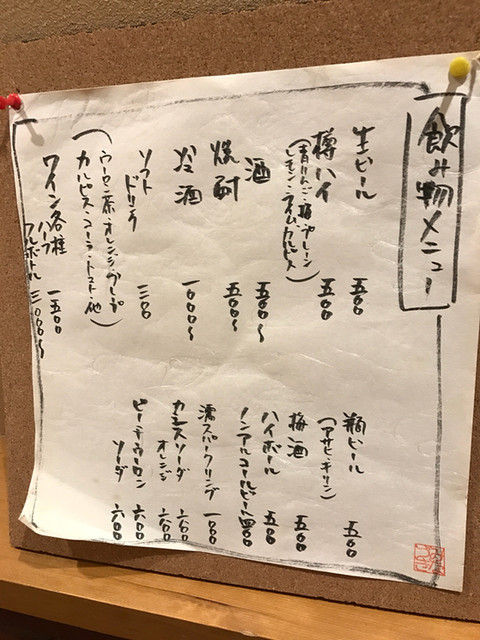 飲み物メニュー
生ビール 五〇〇
樽ハイ 五〇〇
(青りんご・梅・プレーン
レモン・ライム・カルピス)
酒 五〇〇〜
焼酎 五〇〇〜
冷酒 一〇〇〇〜
ソフト
ドリンク 三〇〇
(ウーロン茶・オレンジ・グレープ
カルピス・コーラ・トマト・他)
ワイン各種
ハーフ 一五〇〇
フルボトル 三〇〇〇〜
瓶ビール 五〇〇
(アサヒ・キリン)
梅酒 五〇〇
ハイボール 五〇〇
ノンアルコールビール 四〇〇
澪スパークリング 一〇〇〇
カシスソーダ 六〇〇
オレンジ 六〇〇
ピーチウーロン 六〇〇
ソーダ 六〇〇